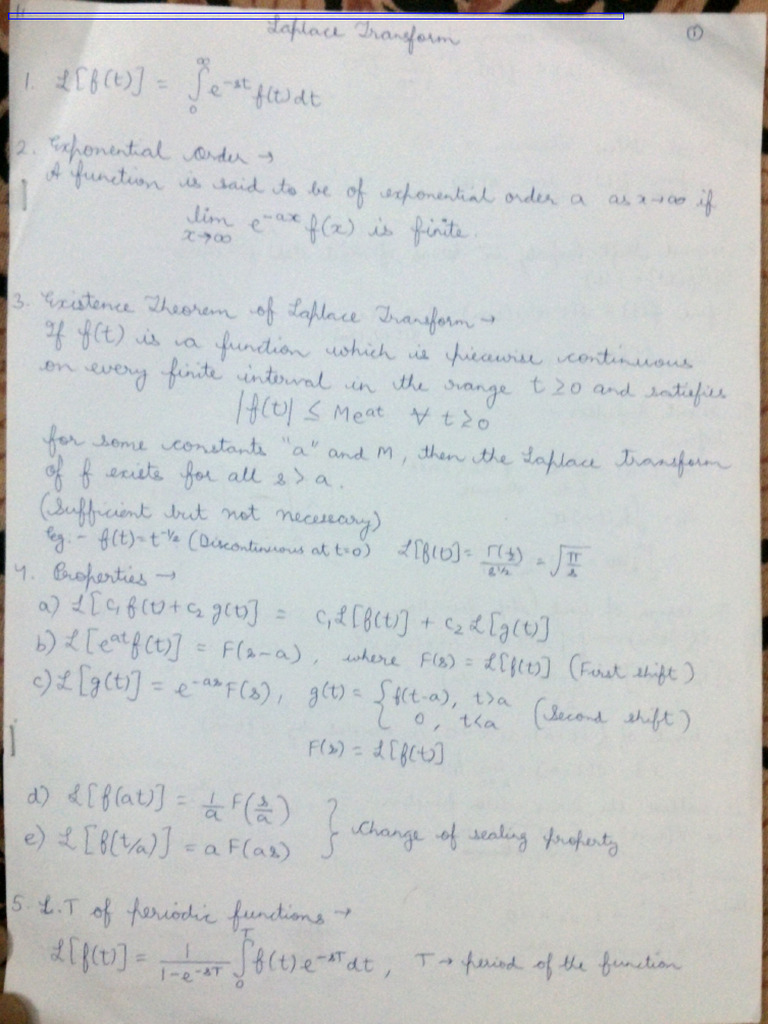 Laplace Transform ①
1. L[f(t)] = ∫₀^∞ e^-st f(t) dt
2. Exponential Order →
A function is said to be of exponential order a as x→∞ if
lim x→∞ e^-ax f(x) is finite.
3. Existence Theorem of Laplace Transform →
If f(t) is a function which is piecewise continuous
on every finite interval in the range t ≥ 0 and satisfies
|f(t)| ≤ Me^at ∀ t ≥ 0
for some constants "a" and M, then the Laplace transform
of f exists for all s > a.
(Sufficient but not necessary)
Eg:- f(t) = t^-1/2 (Discontinuous at t=0) L[f(t)] = Γ(1/2)/s^1/2 = √(π/s)
4. Properties →
a) L[c₁f(t) + c₂g(t)] = c₁L[f(t)] + c₂L[g(t)]
b) L[e^at f(t)] = F(s-a), where F(s) = L[f(t)] (First shift)
c) L[g(t)] = e^-as F(s), g(t) = { f(t-a), t>a
0, t<a (Second shift)
F(s) = L[f(t)]
d) L[f(at)] = 1/a F(s/a)
e) L[f(t/a)] = a F(as) } Change of scaling property
5. L.T of periodic functions →
L[f(t)] = 1/(1-e^-sT) ∫₀^T f(t) e^-sT dt, T → period of the function